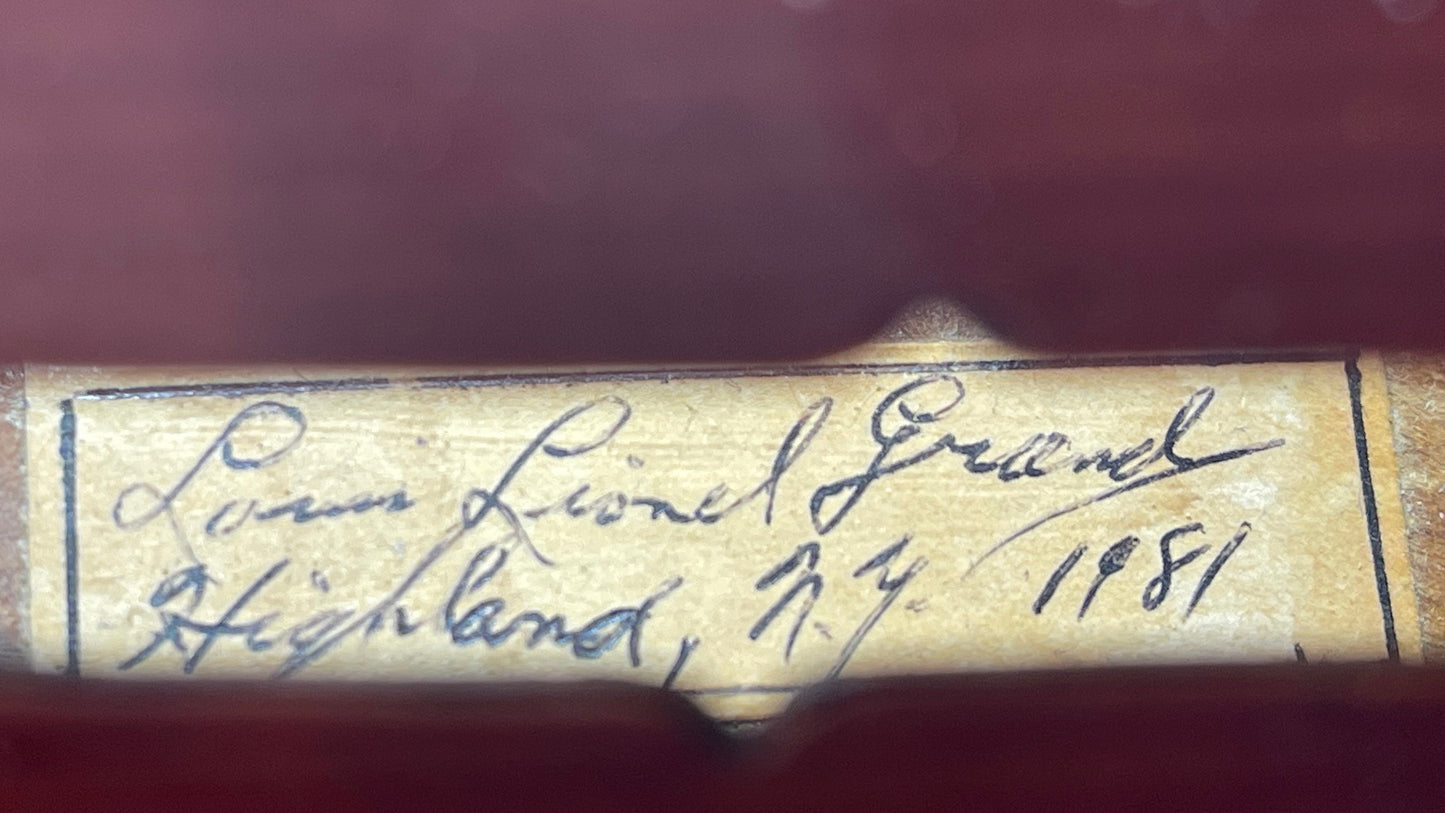 Louis Lionel Grand
Highland, N.Y. 1981